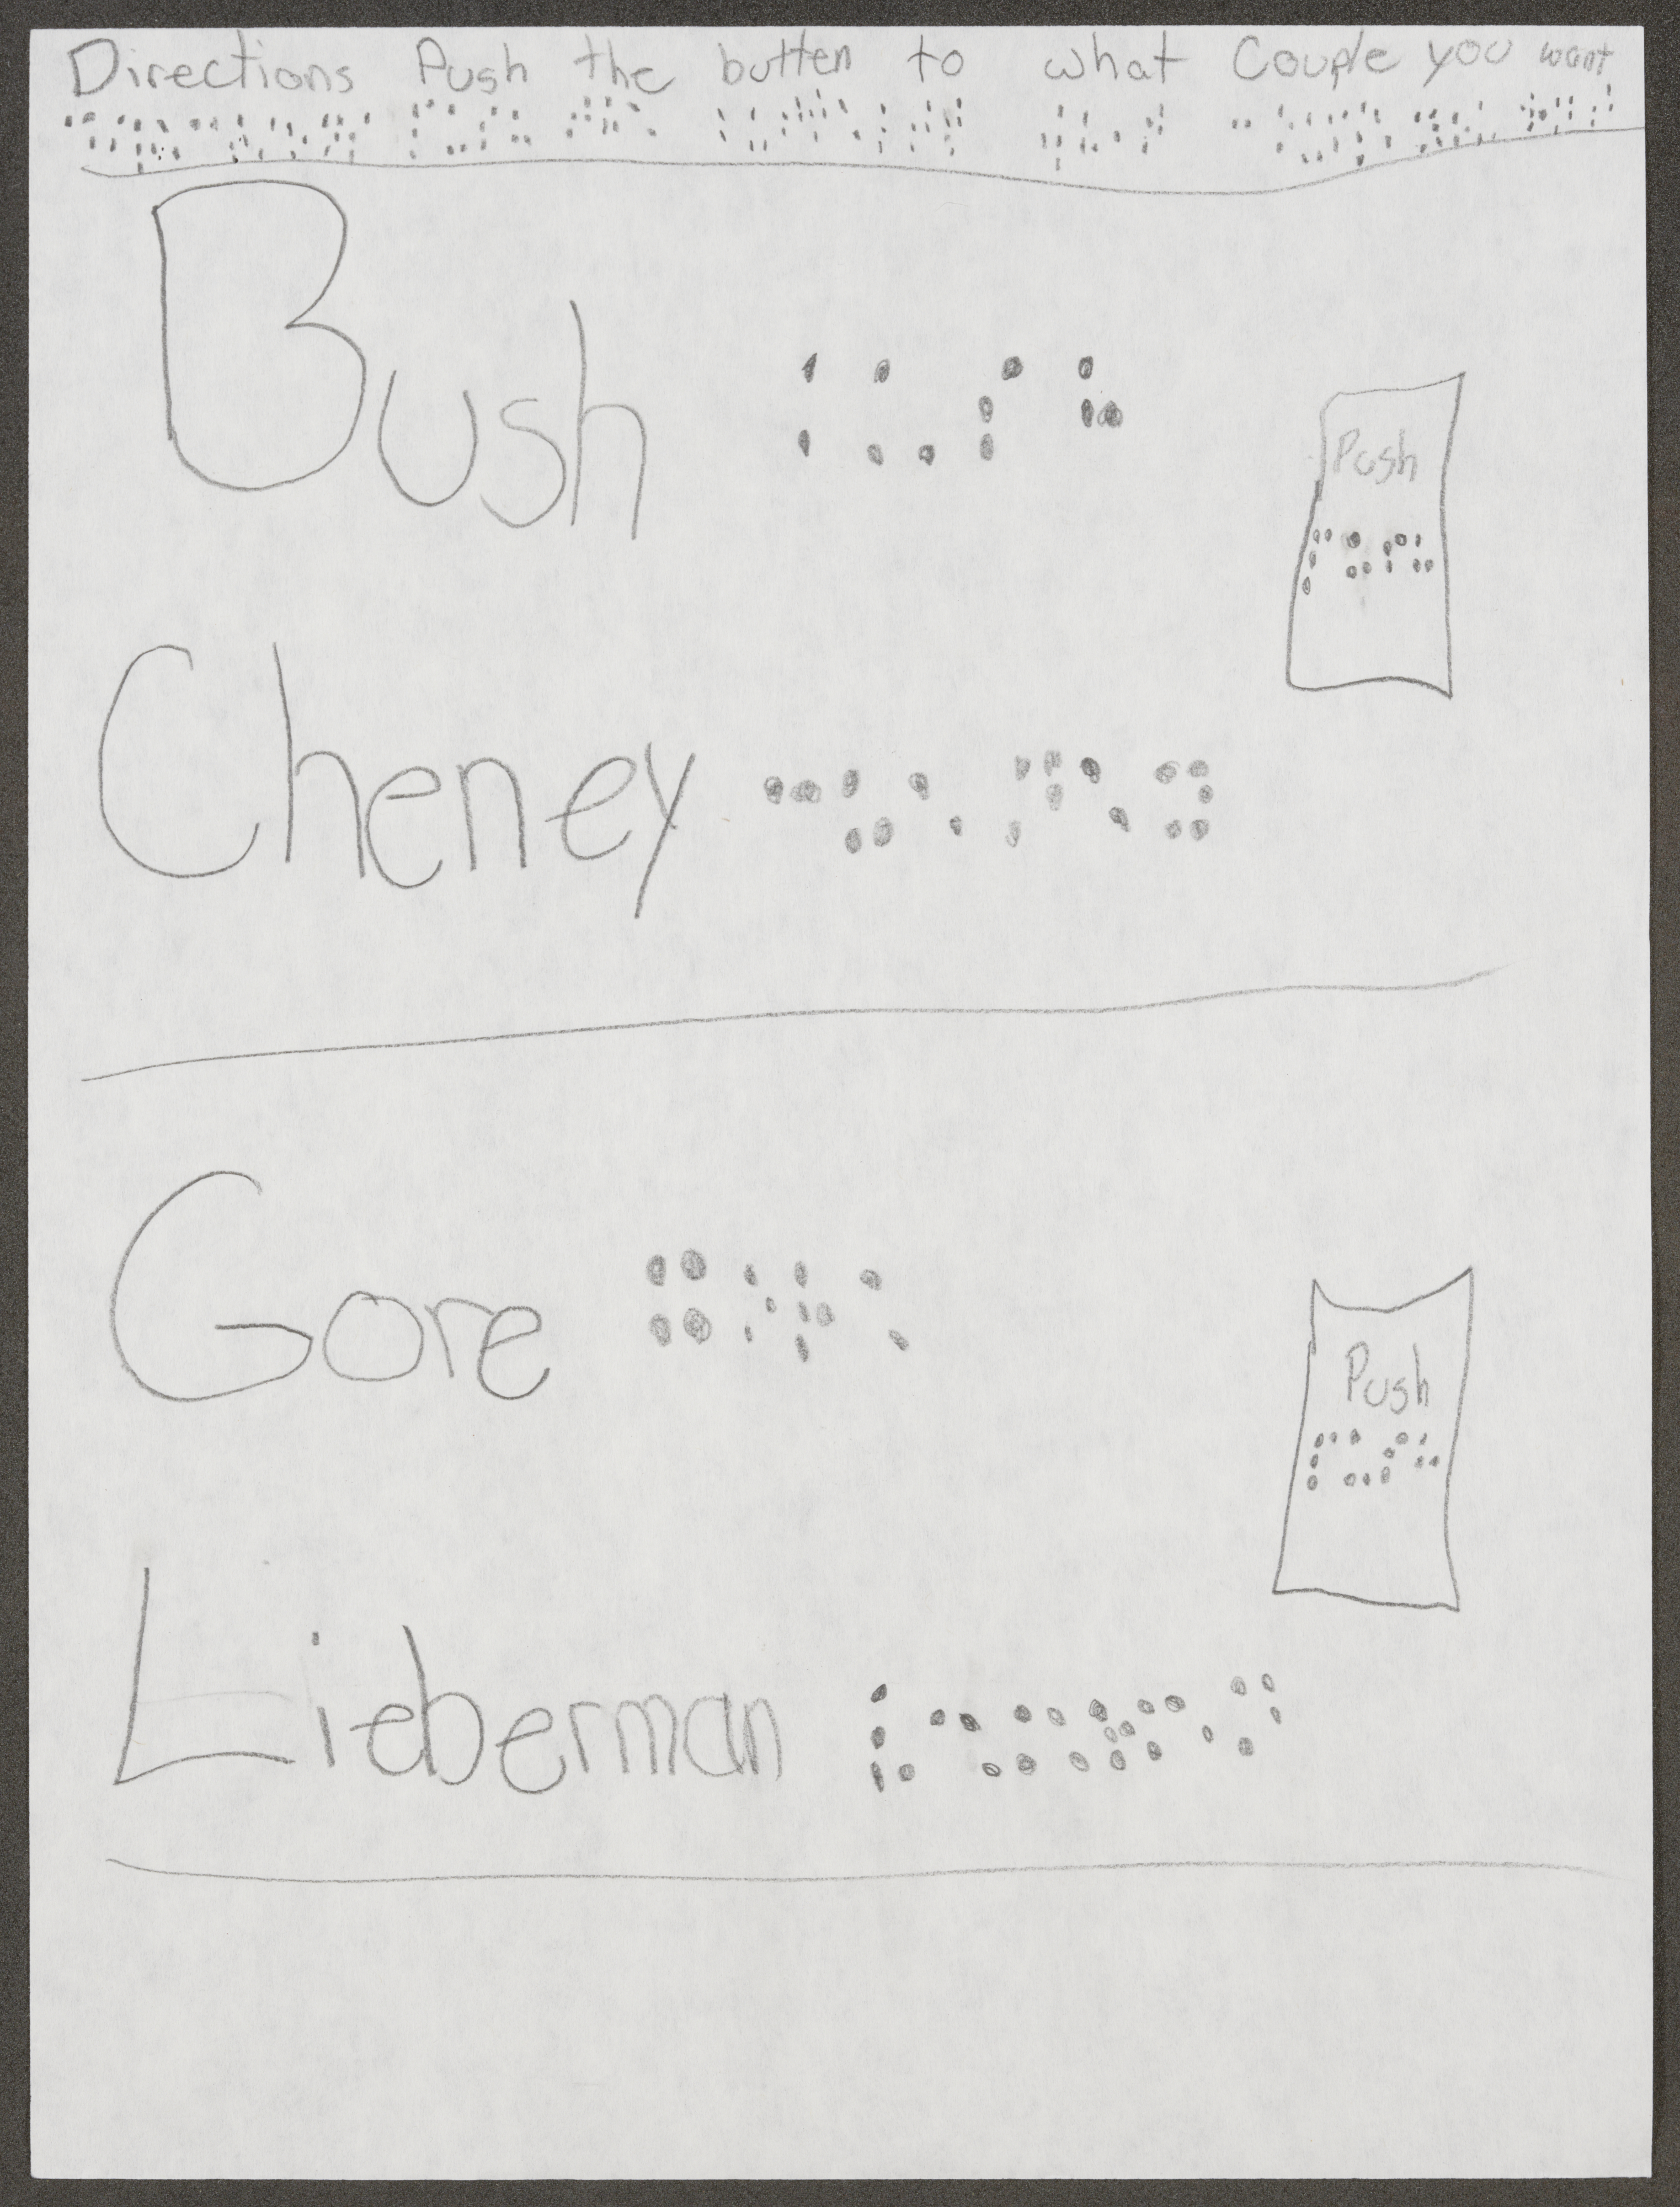 Directions Push the butten to what Couple you want
Bush
Push
Cheney
Gore
Push
Lieberman